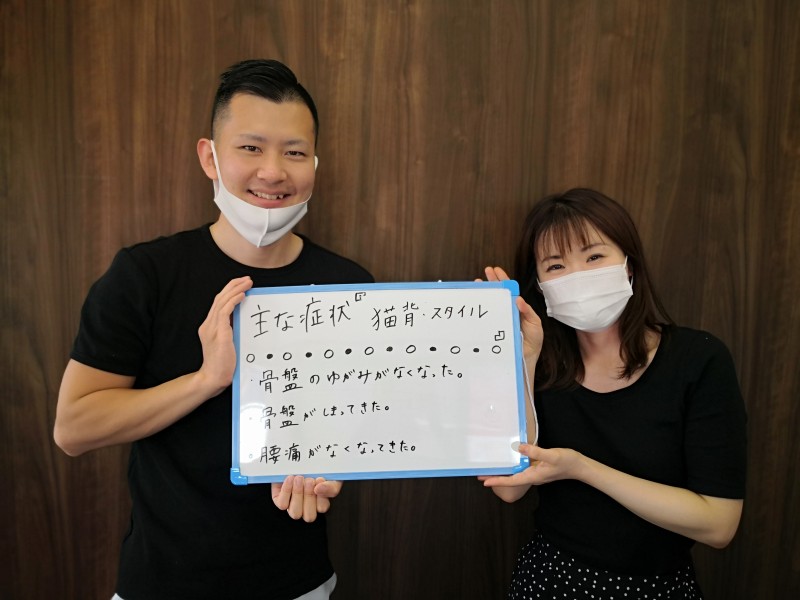 主な症状『猫背・スタイル』
○・○・○・○・○・○・○
・骨盤のゆがみがなくなった。
・骨盤がしまってきた。
・腰痛がなくなってきた。